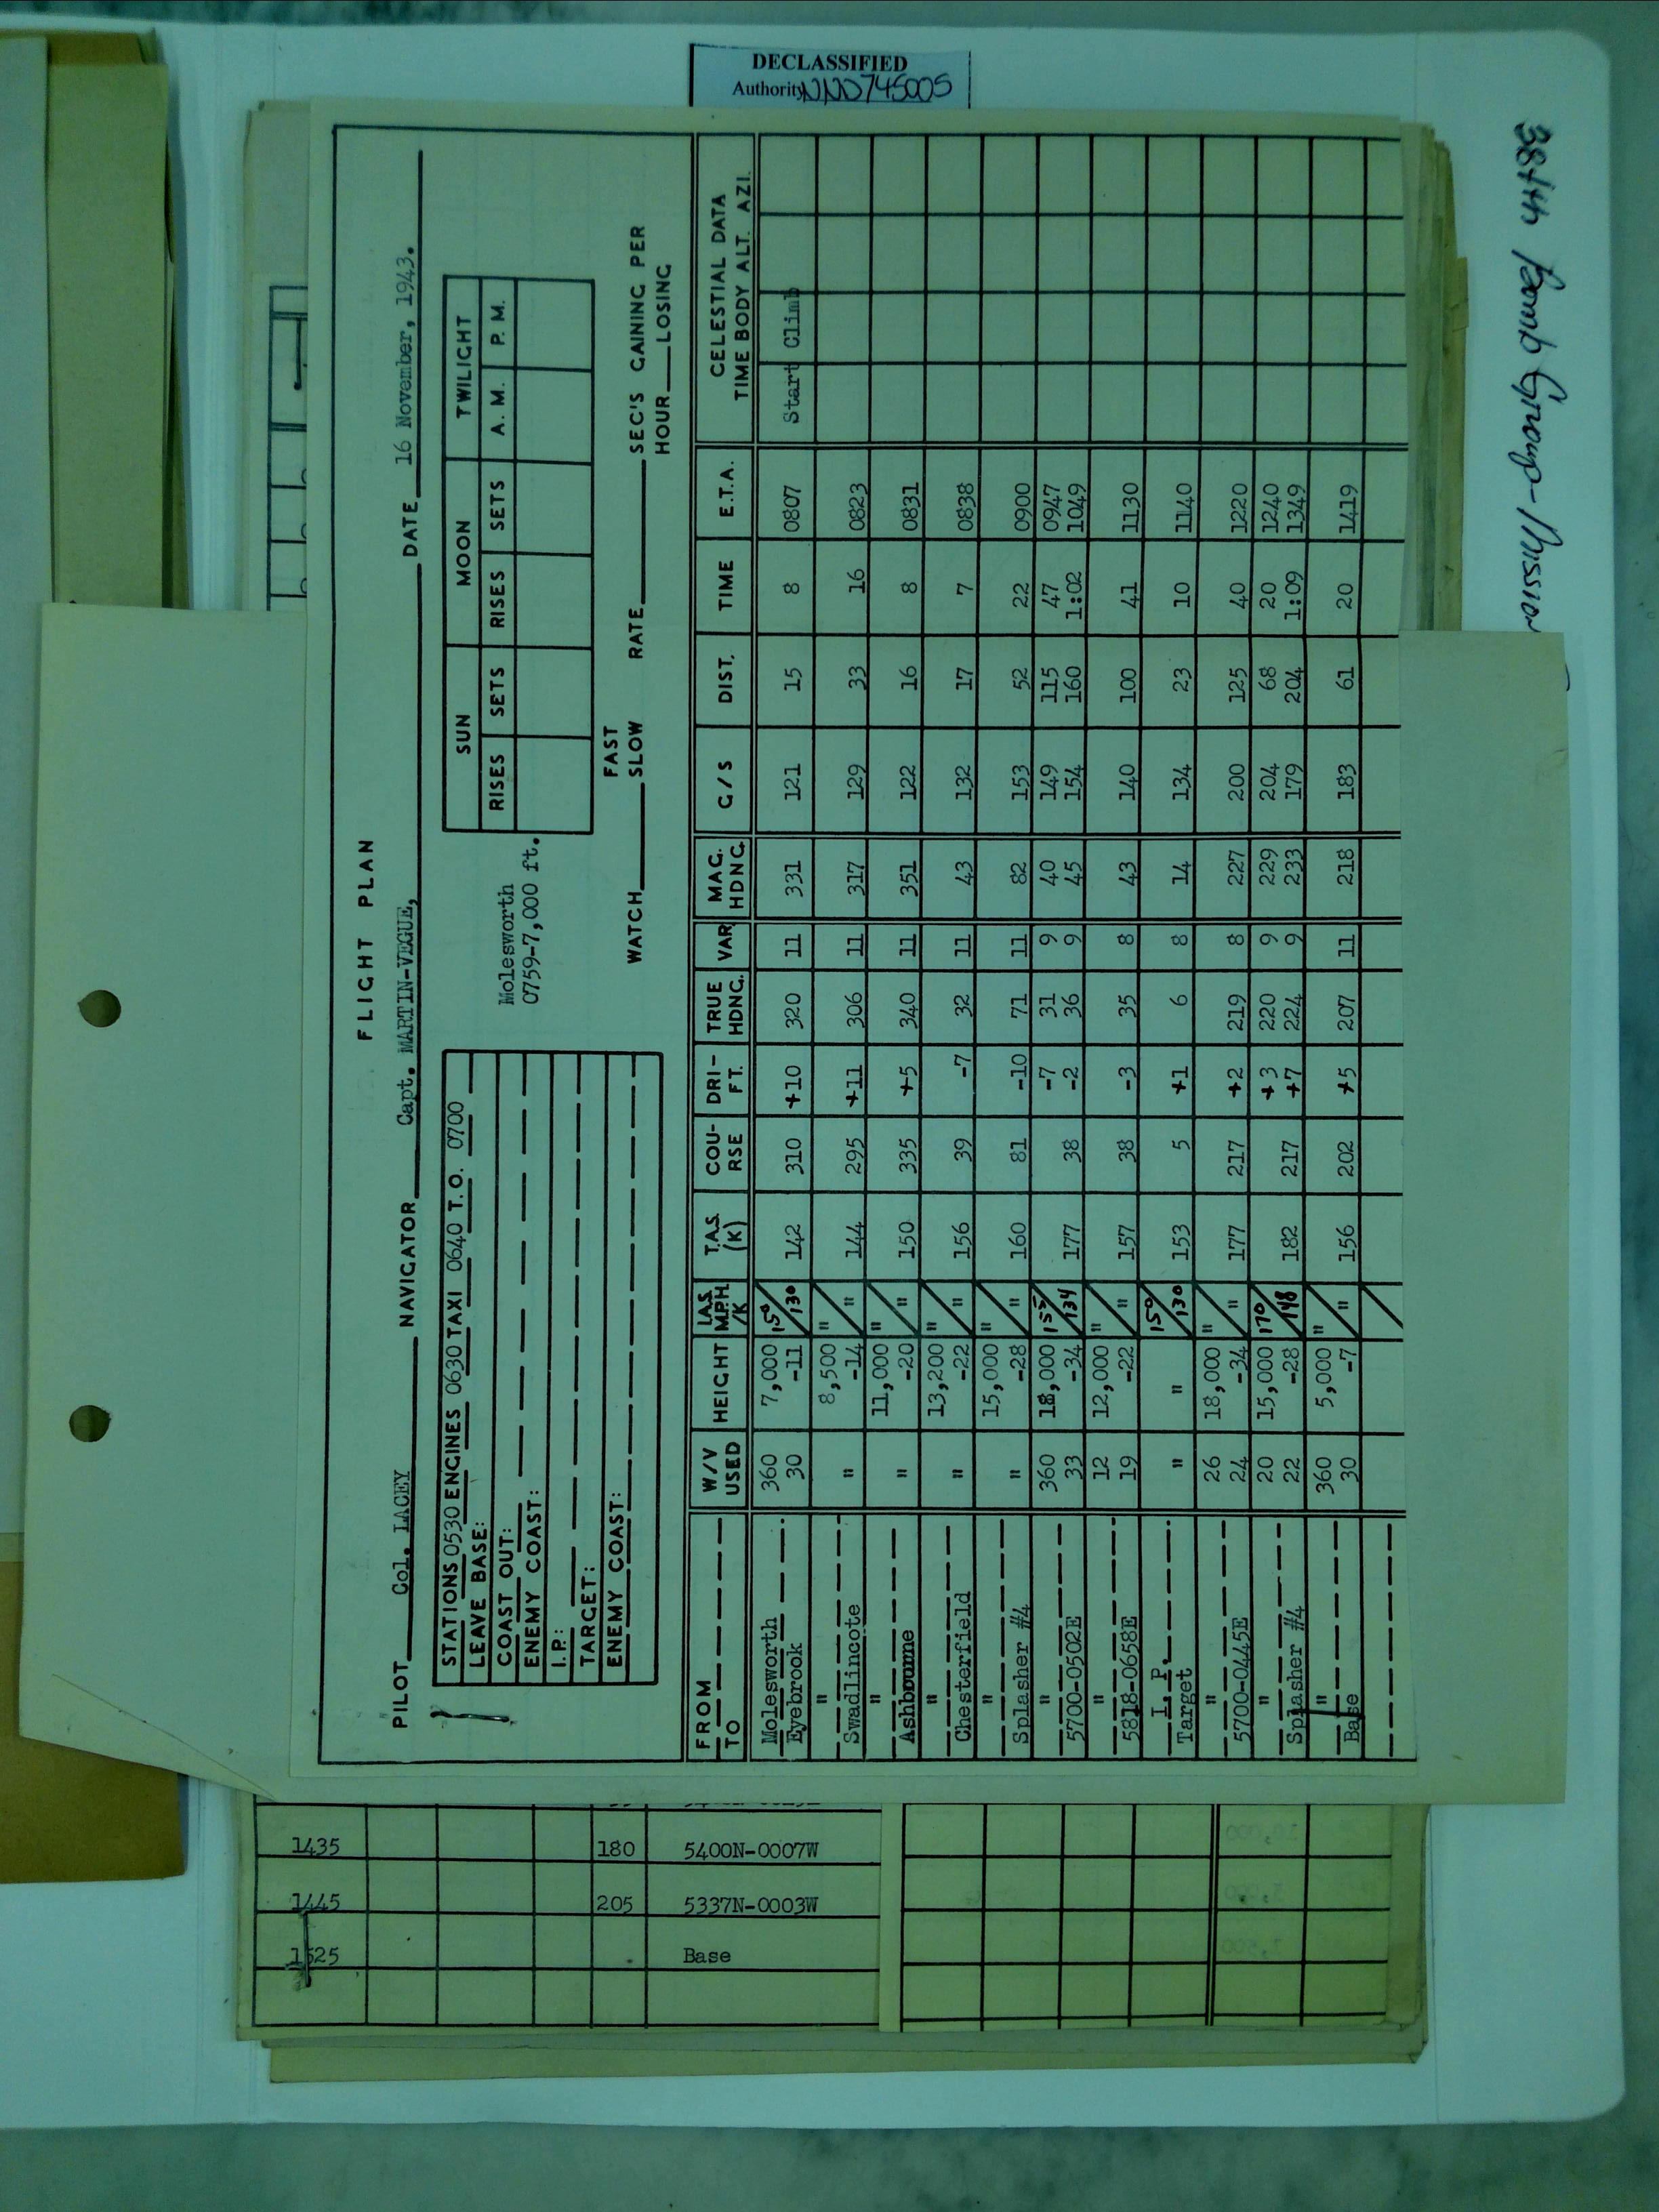 DECLASSIFIED
Authority NND745005
384th Bomb Group - Mission
FLIGHT PLAN
PILOT Col. LACEY NAVIGATOR Capt. MARTIN-VEGUE, DATE 16 November, 1943.
STATIONS 0530 ENGINES 0630 TAXI 0640 T.O. 0700
LEAVE BASE:
COAST OUT:
ENEMY COAST:
I.P.:
TARGET:
ENEMY COAST:
Molesworth
0759-7,000 ft.
SUN MOON TWILIGHT
RISES SETS RISES SETS A. M. P. M.
FAST
WATCH SLOW RATE SEC'S GAINING PER
HOUR LOSING
FROM TO W/V USED HEIGHT I.A.S. M.P.H. /K T.A.S. (K) COU-RSE DRI-FT. TRUE HDNG. VAR MAG. HDNG. G/S DIST. TIME E.T.A. CELESTIAL DATA TIME BODY ALT. AZI.
Molesworth 360 7,000 150
Eyebrook 30 -11 130 142 310 +10 320 11 331 121 15 8 0807 Start Climb
" 8,500 "
Swadlincote " -14 " 144 295 +11 306 11 317 129 33 16 0823
" 11,000 "
Ashbourne " -20 " 150 335 +5 340 11 351 122 16 8 0831
" 13,200 "
Chesterfield " -22 " 156 39 -7 32 11 43 132 17 7 0838
" 15,000 "
Splasher #4 " -28 " 160 81 -10 71 11 82 153 52 22 0900
" 360 18,000 155 -7 31 9 40 149 115 47 0947
5700-0502E 33 -34 134 177 38 -2 36 9 45 154 160 1:02 1049
" 12 12,000 "
5818-0658E 19 -22 " 157 38 -3 35 8 43 140 100 41 1130
I. P. 150
Target " " 130 153 5 +1 6 8 14 134 23 10 1140
" 26 18,000 "
5700-0445E 24 -34 " 177 217 +2 219 8 227 200 125 40 1220
" 20 15,000 170 +3 220 9 229 204 68 20 1240
Splasher #4 22 -28 148 182 217 +7 224 9 233 179 204 1:09 1349
" 360 5,000 "
Base 30 -7 " 156 202 +5 207 11 218 183 61 20 1419
1435 180 5400N-0007W
1445 205 5337N-0003W
1525 Base